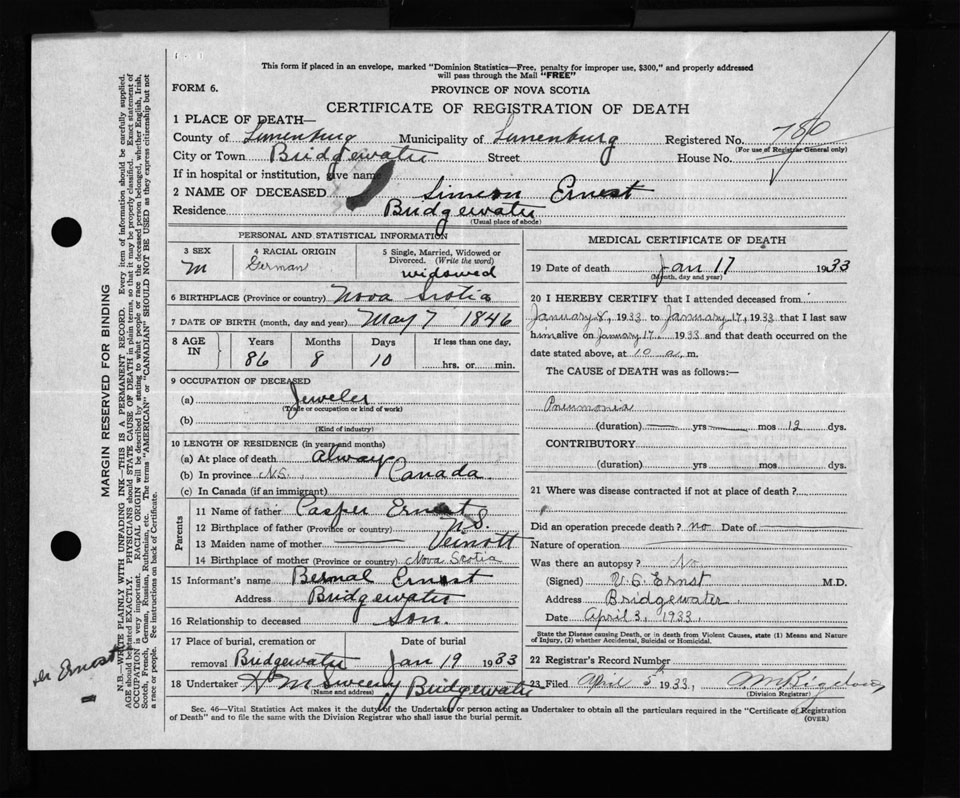 This form if placed in an envelope, marked "Dominion Statistics—Free, penalty for improper use, $300," and properly addressed
will pass through the Mail "FREE"
FORM 6.
PROVINCE OF NOVA SCOTIA
CERTIFICATE OF REGISTRATION OF DEATH
1 PLACE OF DEATH—
County of Lunenburg Municipality of Lunenburg Registered No. 780
(For use of Registrar General only)
City or Town Bridgewater Street House No.
If in hospital or institution, give name
2 NAME OF DECEASED Simeon Ernest
Residence Bridgewater
(Usual place of abode)
PERSONAL AND STATISTICAL INFORMATION
3 SEX M
4 RACIAL ORIGIN German
5 Single, Married, Widowed or Divorced. (Write the word) widowed
6 BIRTHPLACE (Province or country) Nova Scotia
7 DATE OF BIRTH (month, day and year) May 7 1846
8 AGE IN Years Months Days If less than one day,
86 8 10 hrs. or min.
9 OCCUPATION OF DECEASED
(a) Jeweler
(Trade or occupation or kind of work)
(b)
(Kind of industry)
10 LENGTH OF RESIDENCE (in years and months)
(a) At place of death always
(b) In province N.S. Canada
(c) In Canada (if an immigrant)
Parents
11 Name of father Casper Ernest
12 Birthplace of father (Province or country) N.S.
13 Maiden name of mother Veinott
14 Birthplace of mother (Province or country) Nova Scotia
15 Informant's name Bernal Ernest
Address Bridgewater
16 Relationship to deceased son.
17 Place of burial, cremation or removal Bridgewater Date of burial Jan 19 1933
18 Undertaker H M Sweeny Bridgewater
(Name and address)
MEDICAL CERTIFICATE OF DEATH
19 Date of death Jan 17 1933
(Month, day and year)
20 I HEREBY CERTIFY that I attended deceased from
January 8, 1933 to January 17, 1933 that I last saw
him alive on January 17 1933 and that death occurred on the
date stated above, at 10 a. m.
The CAUSE of DEATH was as follows:—
Pneumonia
(duration) yrs mos 12 dys.
CONTRIBUTORY
(duration) yrs mos dys.
21 Where was disease contracted if not at place of death?
Did an operation precede death? no Date of
Nature of operation
Was there an autopsy? No
(Signed) V. S. Ernst M.D.
Address Bridgewater.
Date April 3, 1933.
State the Disease causing Death, or in death from Violent Causes, state (1) Means and Nature of Injury, (2) whether Accidental, Suicidal or Homicidal.
22 Registrar's Record Number
23 Filed April 5th 1933, (Division Registrar)
Sec. 46—Vital Statistics Act makes it the duty of the Undertaker or person acting as Undertaker to obtain all the particulars required in the "Certificate of Registration
of Death" and to file the same with the Division Registrar who shall issue the burial permit. (OVER)
MARGIN RESERVED FOR BINDING
N.B.—WRITE PLAINLY WITH UNFADING INK—THIS IS A PERMANENT RECORD. Every item of information should be carefully supplied.
AGE should be stated EXACTLY. PHYSICIANS should STATE CAUSE OF DEATH in plain terms, so that it may be properly classified. Exact statement of
OCCUPATION is very important. RACIAL ORIGIN will be described by stating to what people or race the deceased person belonged, whether English, Irish,
Scotch, French, German, Russian, Ruthenian, etc. The terms "AMERICAN" or "CANADIAN" SHOULD NOT BE USED as they express citizenship but not
a race or people. See instructions on back of Certificate.
Ernest